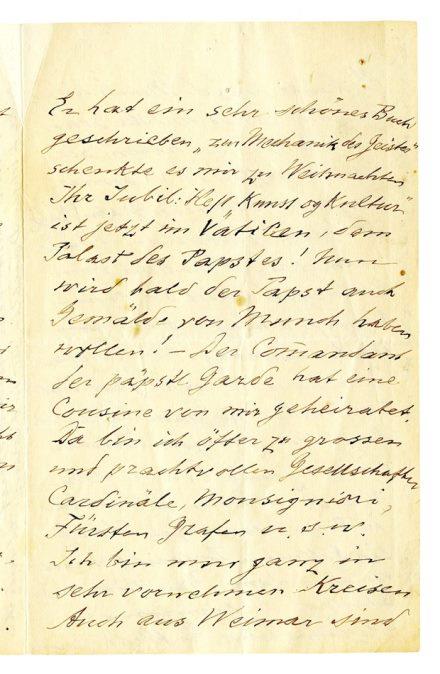 Er hat ein sehr schönes Buch
geschrieben „zur Mechanik des Geistes"
schenkte es mir zu Weihnachten
Ihr Jubil: Heft Kunst og Kultur"
ist jetzt im Vatican, dem
Palast des Papstes! Nun
wird bald der Papst auch
Gemälde von Munch haben
wollen! – Der Comandant
der päpstl Garde hat eine
Cousine von mir geheiratet.
Da bin ich öfter zu grossen
und prachtvollen Gesellschaften
Cardinäle, Monsignori,
Fürsten Grafen u. s. w.
Ich bin nur ganz in
sehr vornehmen Kreisen
Auch aus Weimar sind